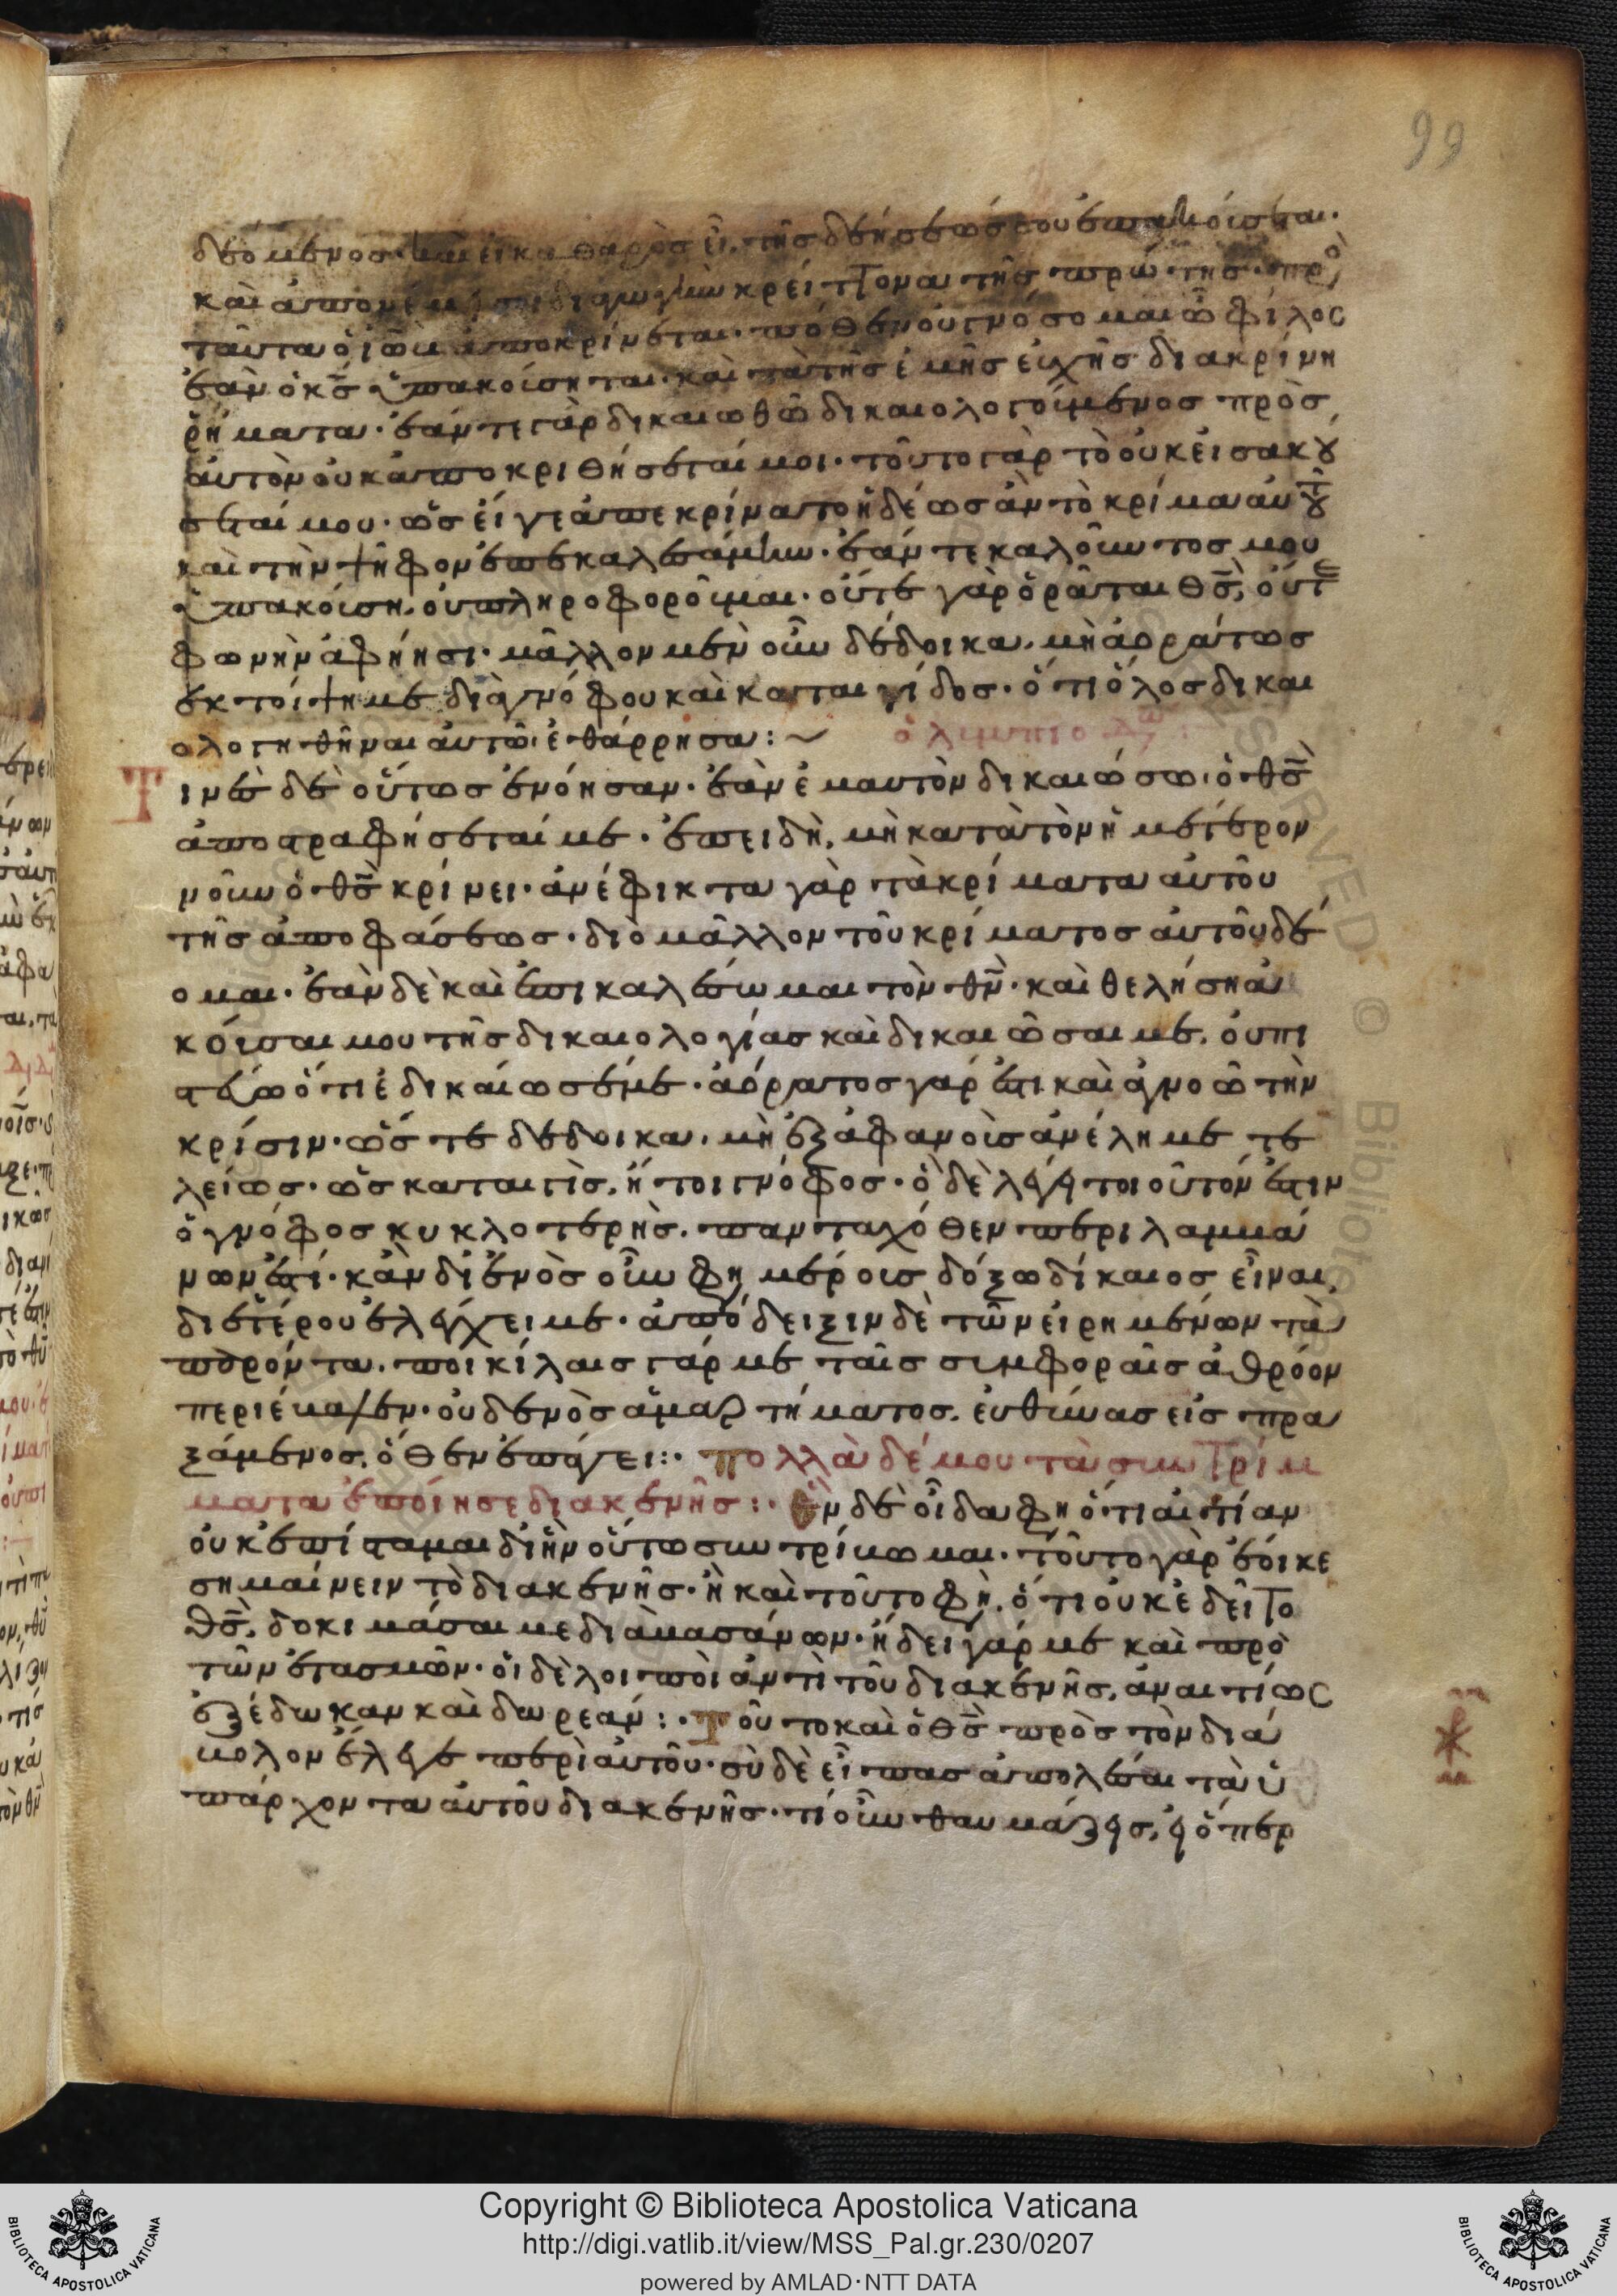 99
δεόμενος· καὶ εἰ καθαρὸς εἶ, τῆς δεήσεώς σου ἐπακούσεται·
καὶ ἀπο κρείττονα τῆς πρώτης· πρὸ
ταῦτα ὁ ἰὼβ ἀποκρίνεται· πόθεν οὖν γνώσομαι ὦ φίλος
ἐὰν ὁ κς ὑπακούσηται· καὶ τὰ τῆς ἐμῆς εὐχῆς διακρίνη
ῥήματα· ἐάν τε γὰρ δικαιωθῶ δικαιολογούμενος πρὸς
αὐτὸν οὐκ ἀποκριθήσεταί μοι· τοῦτο γὰρ τὸ οὐκ εἰσακού
σεταί μου· ὡς εἴ γε ἀπεκρίνατο ἡδέως ἂν τὸ κρίμα αὐτοῦ
καὶ τὴν ψῆφον ἐπεκαλεσάμην· ἐάν τε καλοῦντος μου
ὑπακούση, οὐ πληροφοροῦμαι· οὔτε γὰρ ὁρᾶται θς, οὔτε
φωνὴν ἀφίησι· μᾶλλον μὲν οὖν δέδοικα, μὴ ἀοράτως
ἐκτρίψη με διὰ γνόφου καὶ καταιγίδος· ὅτι ὅλος δικαι
ολογηθῆναι αὐτῶ ἐθάρρησα:~ ὀλυμπιοδω:
Τινὲ δὲ οὕτως ἐνόησαν· ἐὰν ἐμαυτὸν δικαιώσω, ὁ θς
ἀποστραφήσεταί με· ἐπειδὴ, μὴ κατὰ τὸν ἡμέτερον
νοῦν ὁ θς κρίνει· ἀνέφικτα γὰρ τὰ κρίματα αὐτοῦ
τῆς ἀποφάσεως· διὸ μᾶλλον τοῦ κρίματος αὐτοῦ δέ
ομαι· ἐὰν δὲ καὶ ἐπικαλέσωμαι τὸν θν· καὶ θελήση ἀ
κοῦσαι μου τῆς δικαιολογίας καὶ δικαιῶσαι με, οὐ πι
στεύω ὅτι ἐδικαίωσέ με· ἀόρατος γάρ ἐστι καὶ ἀγνοῶ τὴν
κρίσιν· ὥστε δέδοικα, μὴ ἐξ ἀφανοῦς ἀνέλη με τε
λείως· ὡς καταιγὶς, ἤτοι γνόφος· ὃ δὲ λέγει τοιοῦτόν ἐστιν
ὁ γνόφος κυκλοτερὴς, πανταχόθεν περιλαμβά
νων ἐστί· κἂν δι' ἑνὸς οὖν φη μέρους δόξω δίκαιος εἶναι,
δι' ἑτέρου ἐλέγχει με· ἀπόδειξιν δὲ τῶν εἰρημένων τὰ
παρόντα· ποικίλαις γάρ με ταῖς συμφοραῖς ἀθρόον
περιέβαλεν· οὐδενὸς ἁμαρτήματος, εὐθύνας εἰσπρα
ξάμενος, ὅθεν ἐπάγει:· πολλὰ δέ μου τὰ συντρίμ
ματα ἐποίησε διακενῆς:· Ἓν δὲ οἶδα φη ὅτι αἰτίαν
οὐκ ἐπίσταμαι δι' ἣν οὕτω συντρίβομαι· τοῦτο γὰρ ἔοικε
σημαίνειν τὸ διακενῆς· ἢ καὶ τοῦτο φη, ὅτι οὐκ ἐδεῖτο
θς, δοκιμάσαι με διὰ βασάνων· ἤδει γάρ με καὶ πρὸ
τῶν ἐτασμῶν· οἱ δὲ λοιποὶ ἀντὶ τοῦ διακενῆς, ἀναιτίως
ἐξέδωκαν καὶ δωρεάν:· Τοῦτο καὶ ὁ θς πρὸς τὸν διά
βολον ἔλεγε περὶ αὐτοῦ· σὺ δὲ εἶπας ἀπολέσαι τὰ ὑ
πάρχοντα αὐτοῦ διακενῆς· τί οὖν θαυμάζεις, εἰ ὅπερ
Copyright © Biblioteca Apostolica Vaticana
http://digi.vatlib.it/view/MSS_Pal.gr.230/0207
powered by AMLAD·NTT DATA